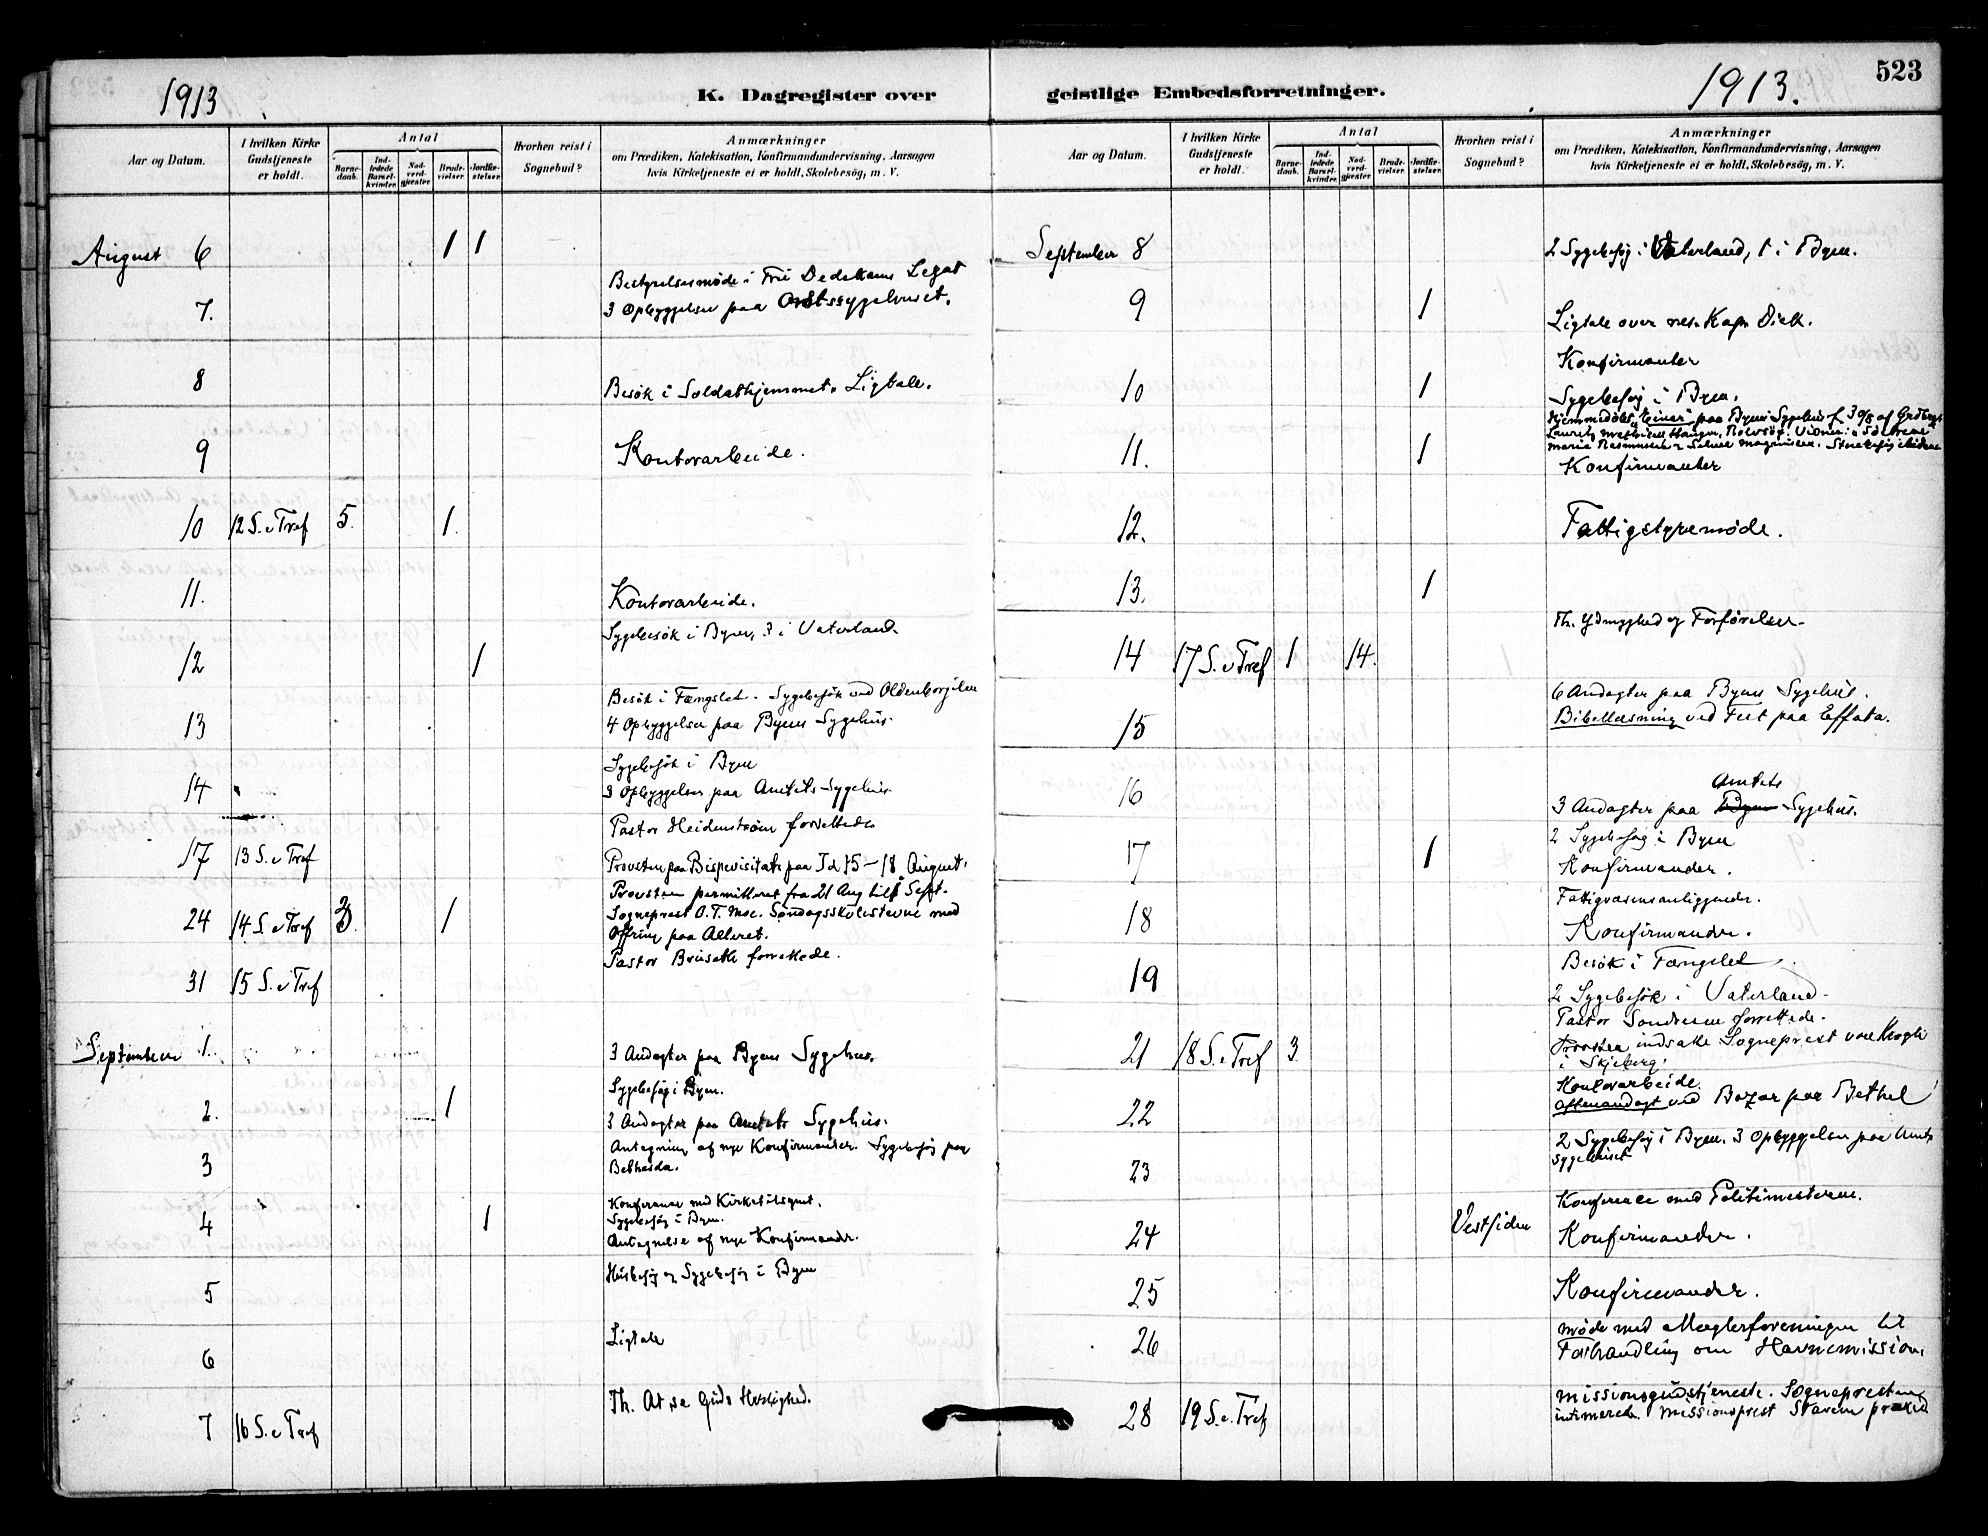 1913
K. Dagregister over
Aar og Datum.
I hvilken Kirke Gudstjeneste er holdt.
Antal
Barne-daab.
Ind-ledede Barsel-kvinder.
Nad-verd-gjæster.
Brude-vielser.
Jordfæ-stelser.
Hvorhen reist i Sognebud?
Anmærkninger
om Prædiken, Katekisation, Konfirmandundervisning, Aarsagen
hvis Kirketjeneste ei er holdt, Skolebesög, m. V.
August 6 1 1
Bestyrelsesmøde i Dedekams Legat
7. 3 Opbyggelser paa
8 Besök i Soldathjemmet. Ligtale.
9 Kontorarbeide.
10 12 S. e Tref 5. 1.
11. Kontorarbeide.
Sygebesök i Byen, 3 i Vaterland.
12 1
Besök i Fængslet. Sygebesök ved
13 4 Opbyggelser paa Byens Sygehus.
Sygebesök i Byen
14 3 Opbyggelser paa Amtets Sygehus.
Pastor Heidenstrøm forrettede
17 13 S. e Tref Provsten paa Bispevisitats paa 15-18 August.
Provsten permitteret fra 21 Aug til Sept.
24 14 S. e Tref 1 Sogneprest O. T. Moe. Søndagsskolestevne med
Offring paa Alteret.
Pastor forrettede.
31 15 S. e Tref
September 1. 3 Andagter paa Byens Sygehus.
Sygebesög i Byen.
2. 1 3 Andagter paa Amtets Sygehus.
Antagning af nye Konfirmander. Sygebesög paa
3 Bethesda.
Konferanse med Kirketilsynet.
4 1 Sygebesög i Byen.
Antagelse af nye Konfirmander.
Husbesög og Sygebesög i Byen
5
Ligtale
6
Th. At se Guds Herlighed.
7 16 S. e Tref
geistlige Embedsforretninger.
1913.
523
Aar og Datum.
I hvilken Kirke Gudstjeneste er holdt.
Antal
Barne-daab.
Ind-ledede Barsel-kvinder.
Nad-verd-gjæster.
Brude-vielser.
Jordfæ-stelser.
Hvorhen reist i Sognebud?
Anmærkninger
om Prædiken, Katekisation, Konfirmandundervisning, Aarsagen
hvis Kirketjeneste ei er holdt, Skolebesög, m. V.
September 8 2 Sygebesög i Vaterland, 1 i Byen.
9 1 Ligtale over Kap.
Konfirmanter
10 1 Sygebesög i Byen.
Hjemmedöbt "Einar" paa Byens Sygehus
11. 1
Konfirmanter
12. Fattigstyremøde.
13. 1
Th. Ydmyghed og Forførelser.
14 17 S. e Tref 1 14.
6 Andagter paa Byens Sygehus.
15 Bibellæsning ved Fest paa Effata.
Amtets
16 3 Andagter paa Byens Sygehus.
2 Sygebesög i Byen
17 1 Konfirmander.
Fattigvæsensanliggender.
18 Konfirmander.
Besök i Fængslet
19
2 Sygebesök i Vaterland.
Pastor forrettede.
21 18 S. e Tref 3. Provsten indsatte Sogneprest von Krogh
i Skjeberg.
Kontorarbeide.
22 Aftenandagt ved Bazar paa Bethel
2 Sygebesög i Byen. 3 Opbyggelser paa Amts
23 sygehuset
Konferance med Politimesteren.
24 Vestsiden Konfirmander.
25 Konfirmander.
26 Møde med Mæglerforeningen til
Forhandling om Havnemission.
Missionsgudstjeneste. Sogneprest
28 19 S. e. Tref Missionsprest Stavem